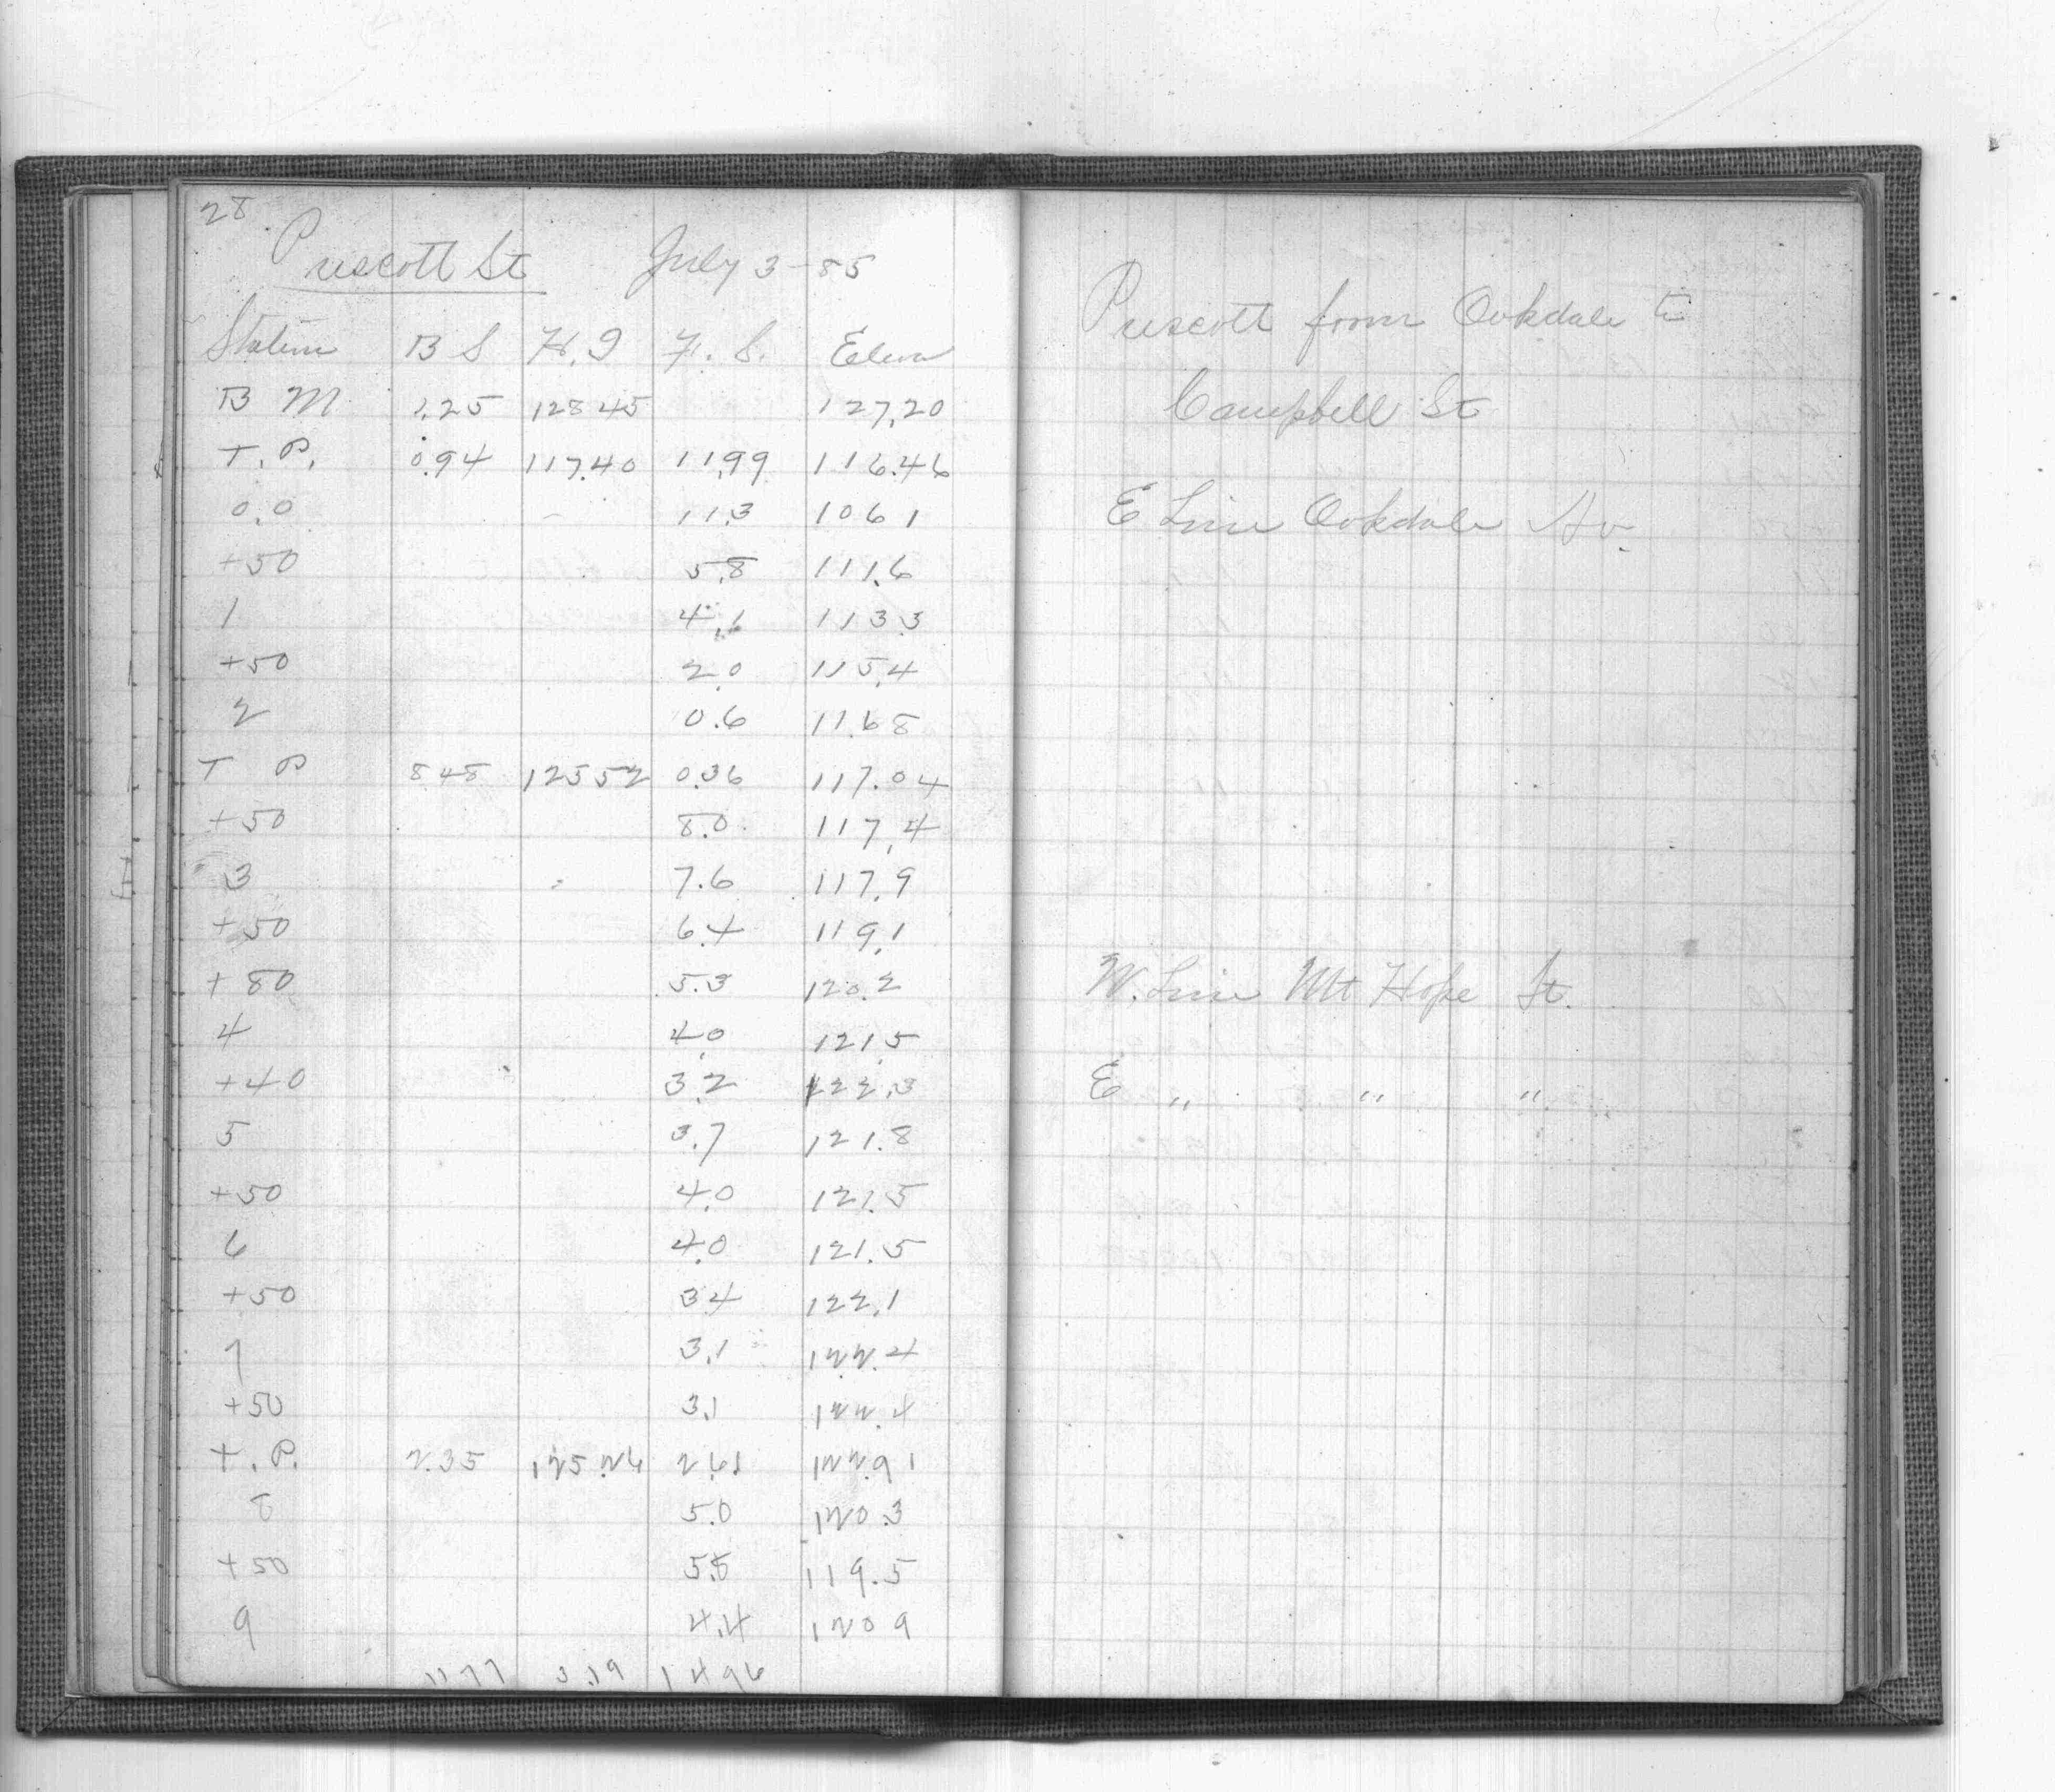 28
Prescott St July 3-85
Station B S H. I F. S. Eleva
B M 1.25 128 45 127.20
T. P. 0.94 117.40 11.99 116.46
0.0 11.3 106 1
+50 5.8 111.6
1 4.1 113.3
+50 2.0 115.4
2 0.6 116 8
T P 8.48 125 52 0.36 117.04
+50 8.0 117.4
3 7.6 117.9
+50 6.4 119.1
+80 5.3 120.2
4 4.0 121.5
+40 3.2 122.3
5 3.7 121.8
+50 4.0 121.5
6 4.0 121.5
+50 3.4 122.1
7 3.1 122.4
+50 3.1 122.4
T. P. 2.35 125.26 2.61 122.91
8 5.0 120.3
+50 5.8 119.5
9 4.4 120 9
11 77 3.19 1 4 96
Prescott from Oakdale to
Campbell St
E Line Oakdale Av.
W. Line Mt Hope St.
E " " "